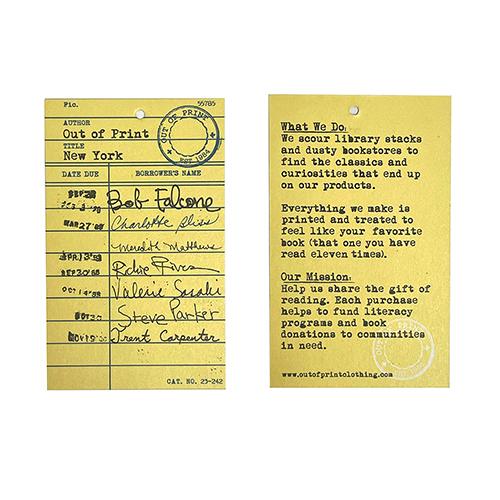 Fic. 55785
AUTHOR
Out of Print
TITLE
New York
OUT OF PRINT
EST. 1984
DATE DUE BORROWER'S NAME
Bob Falcone
MAR 27 Charlotte Bliss
Meredith Matthews
Richie Rivas
OCT 14 Valerie Sasaki
Steve Parker
NOV Trent Carpenter
CAT. NO. 23-242
What We Do:
We scour library stacks
and dusty bookstores to
find the classics and
curiosities that end up
on our products.
Everything we make is
printed and treated to
feel like your favorite
book (that one you have
read eleven times).
Our Mission:
Help us share the gift of
reading. Each purchase
helps to fund literacy
programs and book
donations to communities
in need.
OUT OF PRINT
www.outofprintclothing.com